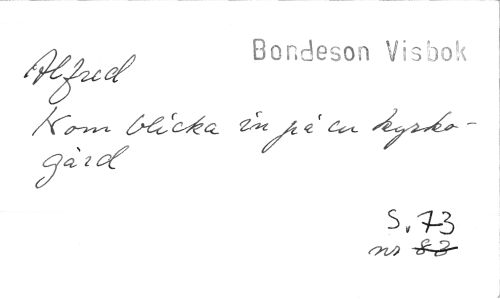 Bondeson Visbok
Alfred
Kom blicka in på en kyrko-
gård
S. 73
nr 82